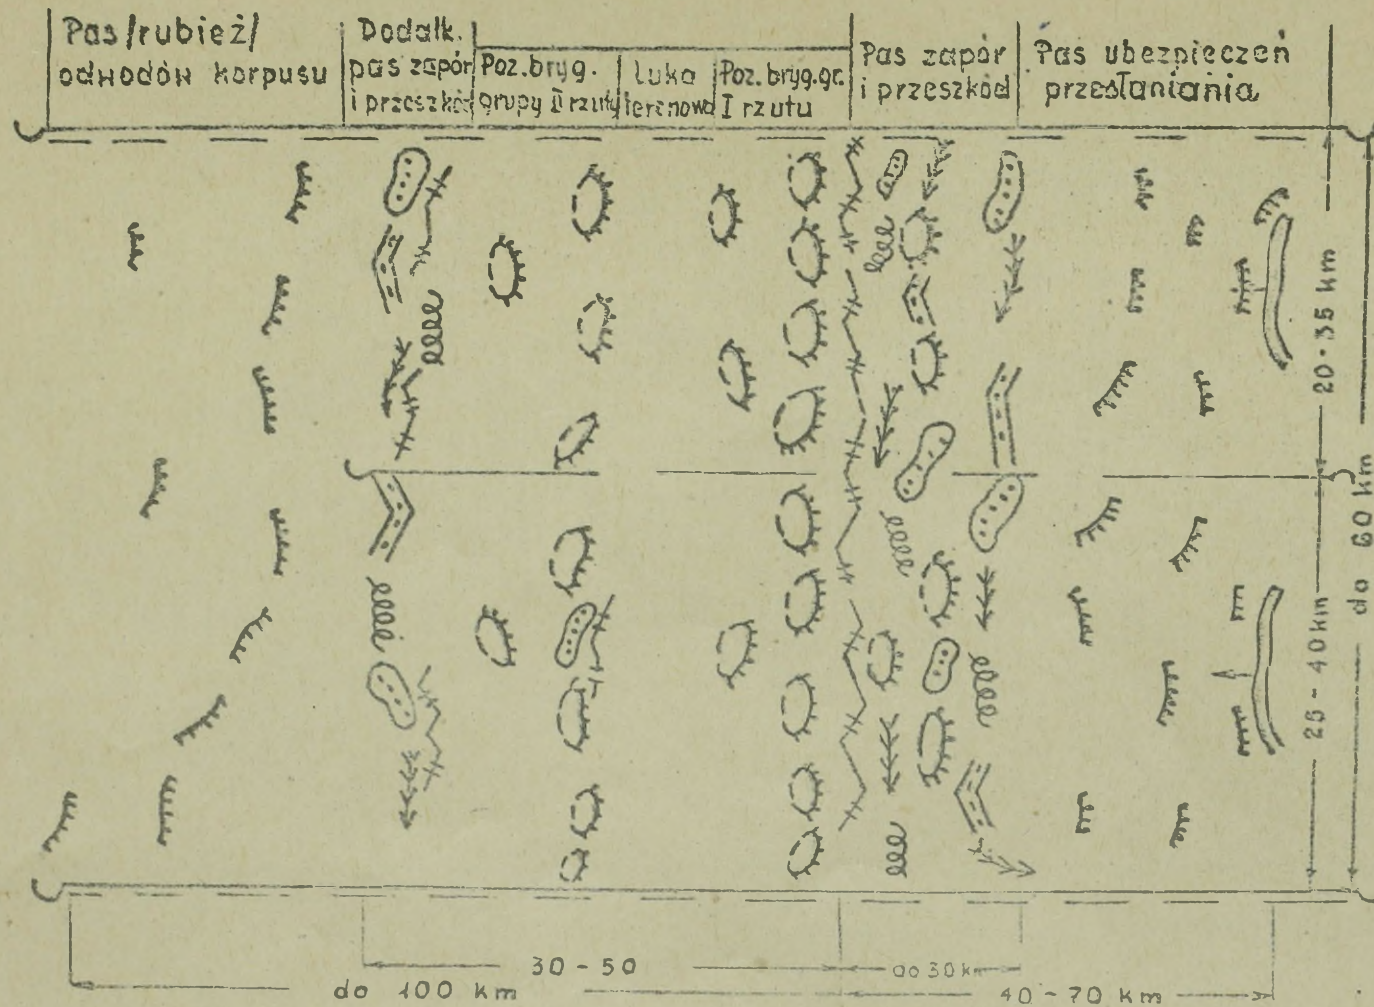 Pas /rubież/
odwodów korpusu
Dodatk.
pas zapór
i przeszkód
Poz. bryg.
grupy II rzutu
luka
terenowa
Poz. bryg. gr.
I rzutu
Pas zapór
i przeszkód
Pas ubezpieczeń
przesłaniania
20-35 km
do 60 km
25-40 km
30-50
do 30 km
do 100 km
40-70 km